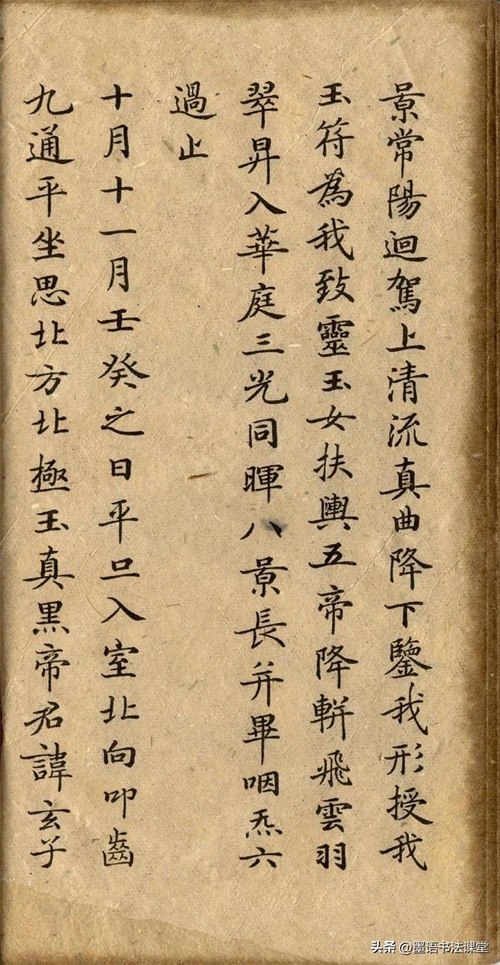 景常陽迴駕上清流真曲降下鑒我形授我
玉符為我致靈玉女扶輿五帝降軿飛雲羽
翠昇入華庭三光同暉八景長并畢咽炁六
過止
十月十一月壬癸之日平旦入室北向叩齒
九通平坐思北方北極玉真黑帝君諱玄子
头条 @墨语书法课堂